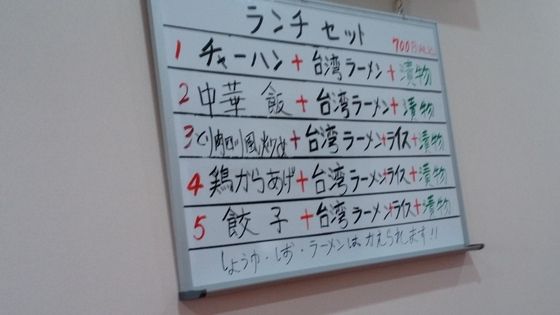 ランチセット
700円(税込)
1 チャーハン+台湾ラーメン+漬物
2 中華飯+台湾ラーメン+漬物
3 とり肉四川風炒め+台湾ラーメン+ライス+漬物
4 鶏からあげ+台湾ラーメン+ライス+漬物
5 餃子+台湾ラーメン+ライス+漬物
しょうゆ・しお・ラーメンはかえられます!!